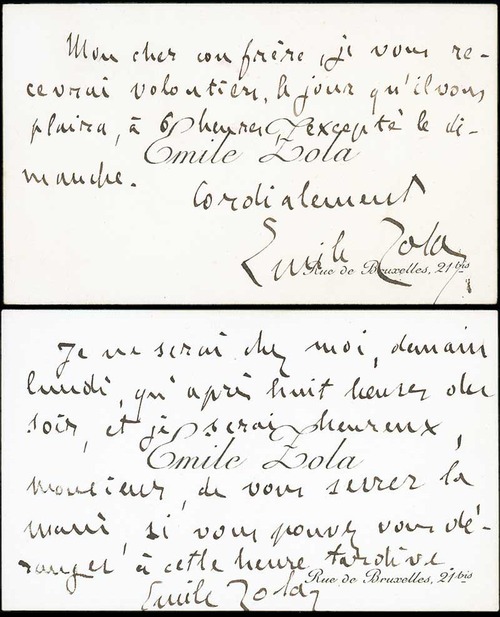 Mon cher confrère, je vous re-
cevrai volontiers, le jour qu'il vous
plaira, à 6 heures, excepté le di-
Emile Zola
manche.
Cordialement
Emile Zola
Rue de Bruxelles, 21 bis
Je ne serai chez moi, demain
lundi, qu'après huit heures du
soir, et je serai heureux,
Emile Zola
monsieur, de vous serrer la
main, si vous pouvez vous dé-
ranger à cette heure tardive.
Rue de Bruxelles, 21 bis
Emile Zola